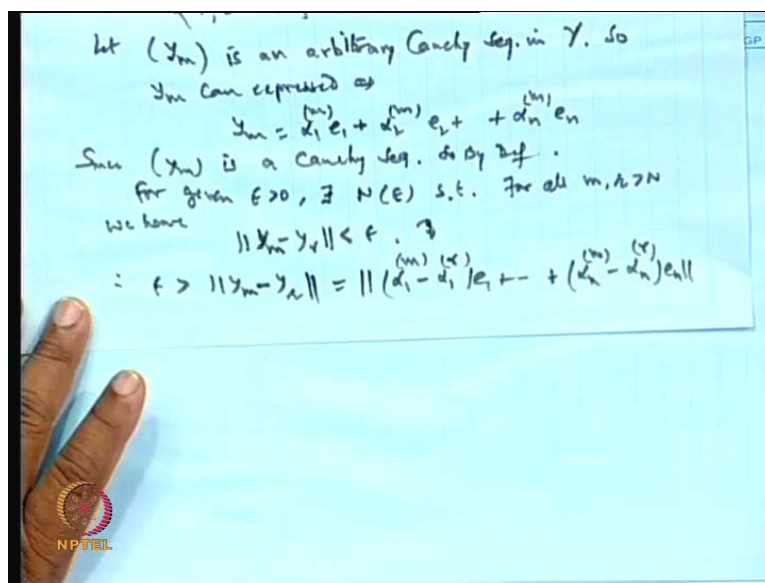 Let (y_m) is an arbitrary Cauchy seq. in Y. so
y_m can expressed as
y_m = α_1^(m) e_1 + α_2^(m) e_2 + + α_n^(m) e_n
Since (y_m) is a Cauchy seq. so By Def.
for given ε>0, ∃ N(ε) s.t. For all m, r > N
we have
||y_m - y_r|| < ε.
∴ ε > ||y_m - y_r|| = ||(α_1^(m) - α_1^(r)) e_1 + -- + (α_n^(m) - α_n^(r)) e_n||
GP
NPTEL